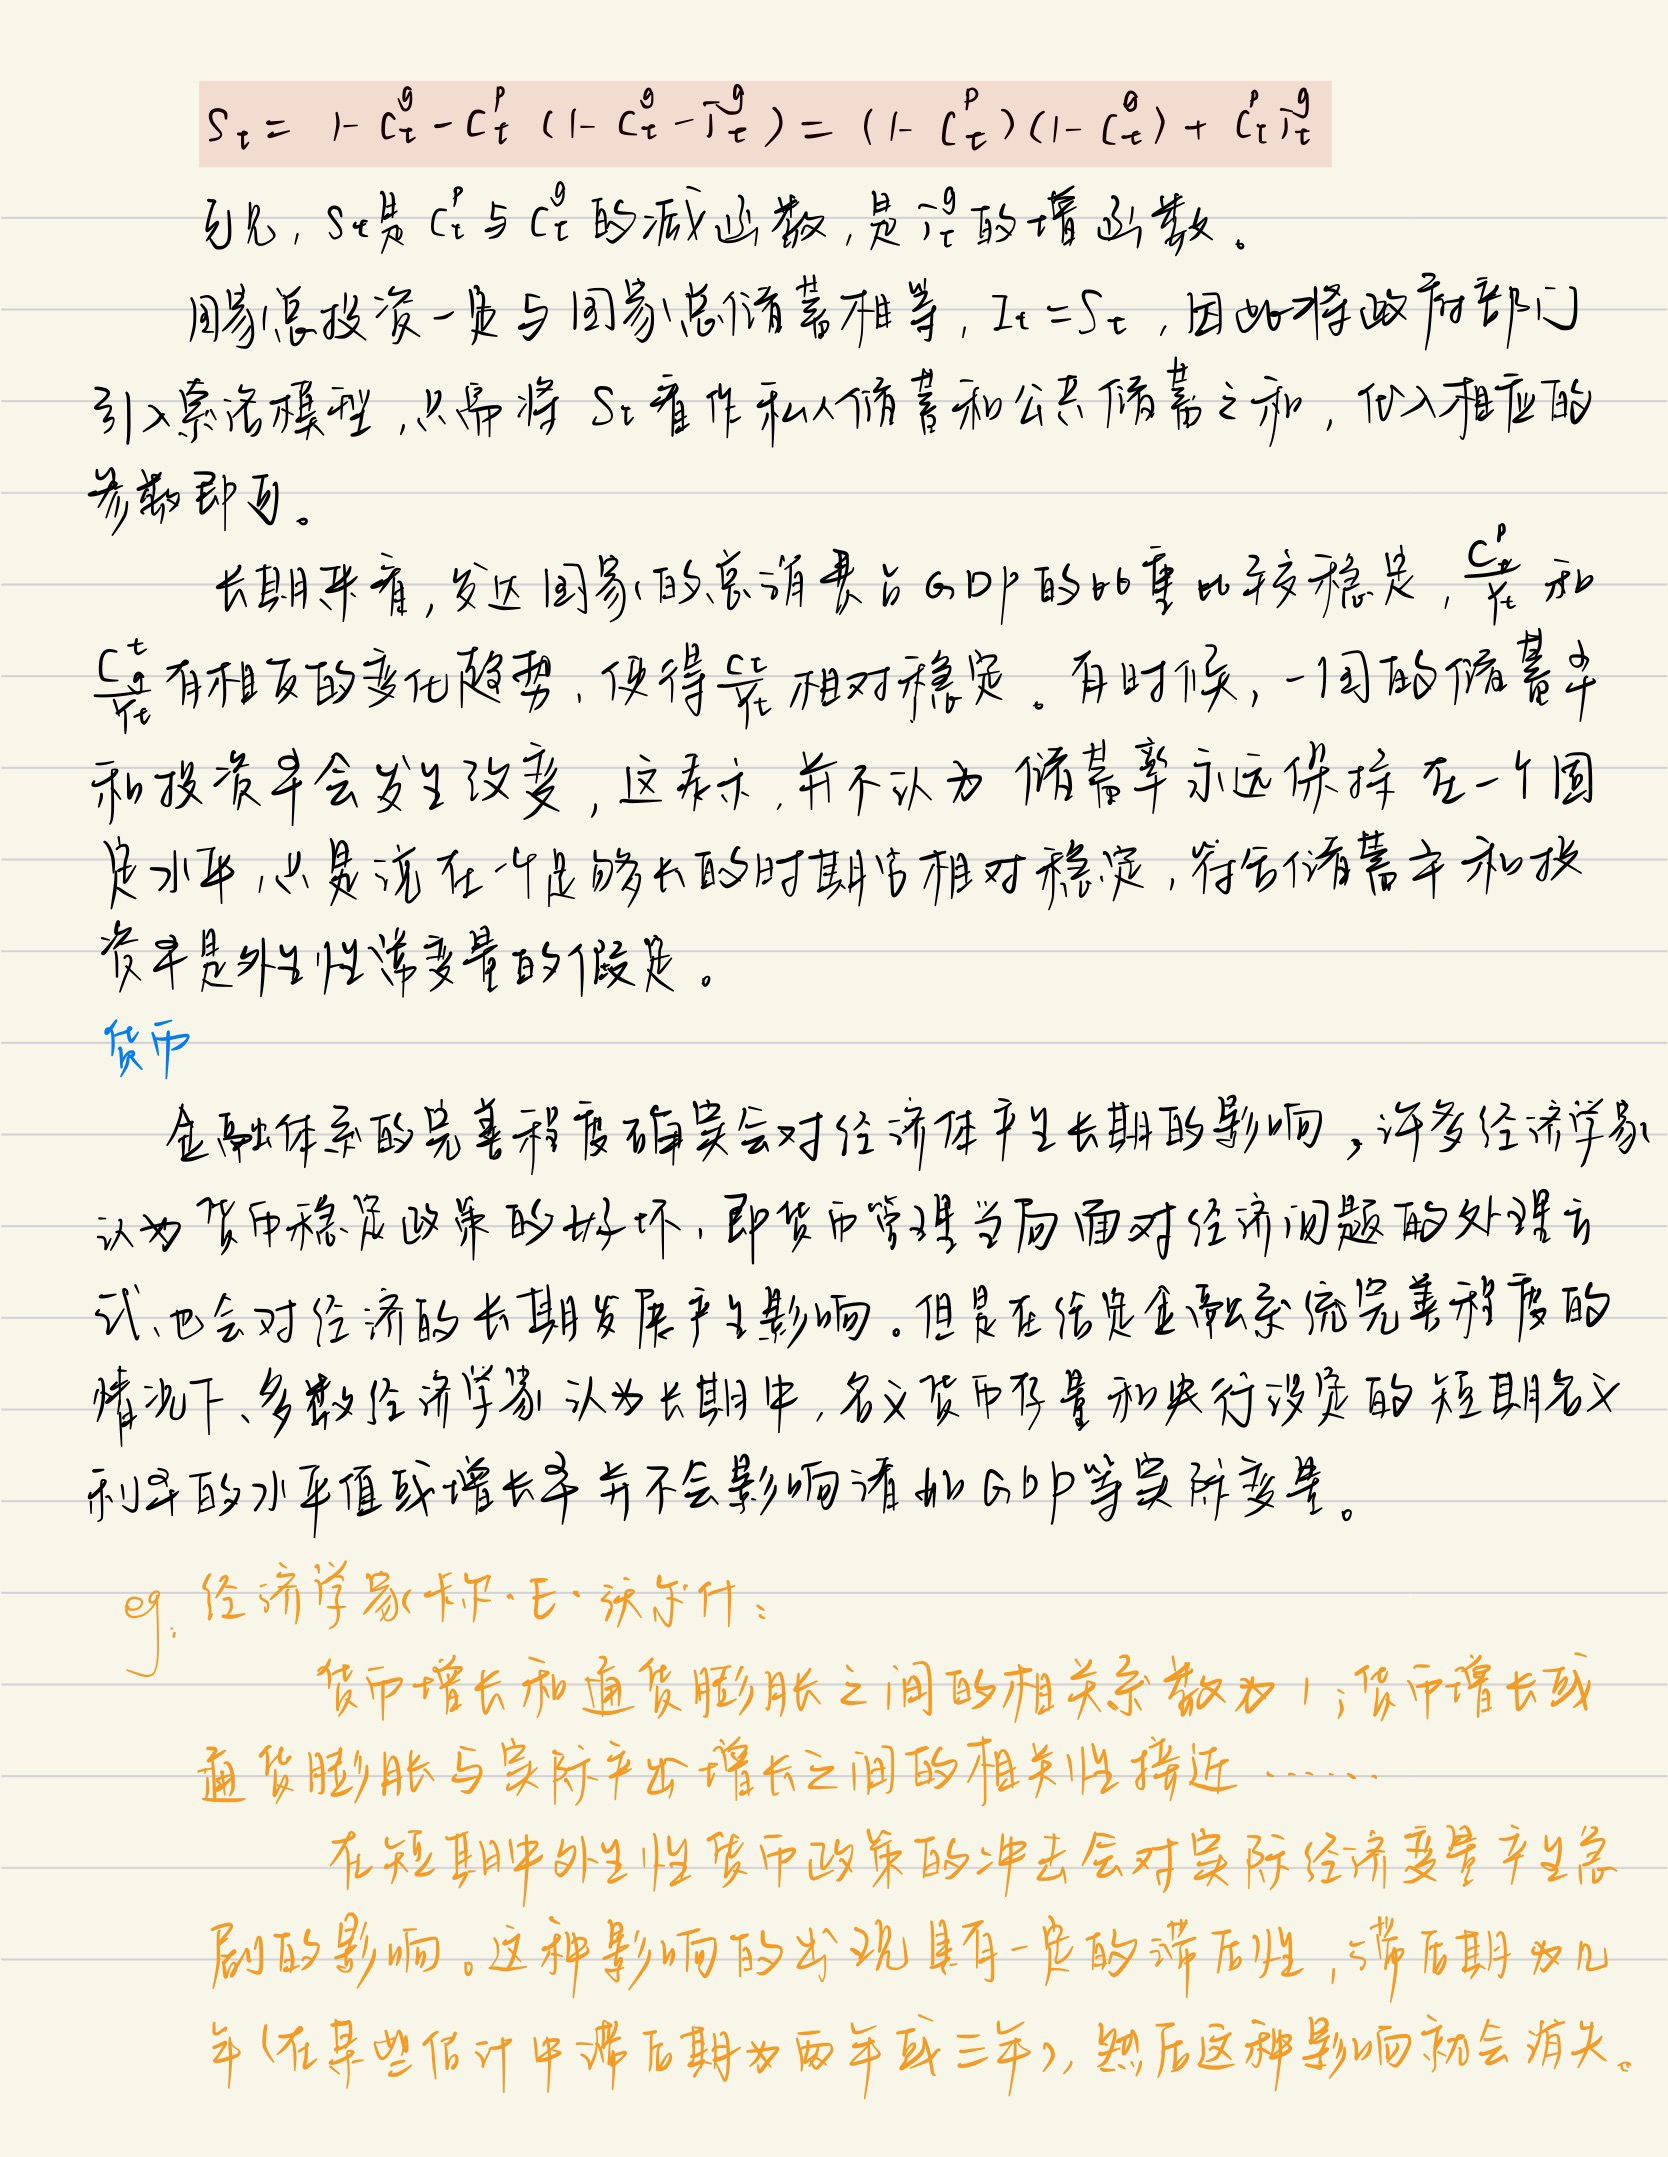 S_t = 1 - C_t^g - C_t^p (1 - C_t^g - i_t^g) = (1 - C_t^p)(1 - C_t^g) + C_t^p i_t^g
可见, S_t是 C_t^p 与 C_t^g 的减函数, 是 i_t^g 的增函数。
国家总投资一定与国家总储蓄相等, I_t = S_t, 因此将政府部门
引入索洛模型, 只需将 S_t 看作私人储蓄和公共储蓄之和, 代入相应的
参数即可。
长期来看, 发达国家的总消费占GDP的比重比较稳定, C_t^p/Y_t 和
C_g^t/Y_t 有相反的变化趋势, 使得 C_t/Y_t 相对稳定。有时候, 一国的储蓄率
和投资率会发生改变, 这表示, 并不认为 储蓄率永远保持在一个固
定水平, 只是说在一个足够长的时期内相对稳定, 符合储蓄率和投
资率是外生性常变量的假定。
货币
金融体系的完善程度确实会对经济体产生长期的影响, 许多经济学家
认为货币稳定政策的好坏, 即货币管理当局面对经济问题的处理方
式、也会对经济的长期发展产生影响。但是在给定金融系统完善程度的
情况下、多数经济学家认为长期中, 名义货币存量和央行设定的短期名义
利率的水平值或增长率并不会影响诸如GDP等实际变量。
eg. 经济学家卡尔·E·沃尔什:
货币增长和通货膨胀之间的相关系数为1; 货币增长或
通货膨胀与实际产出增长之间的相关性接近……
在短期中外生性货币政策的冲击会对实际经济变量产生急
剧的影响。这种影响的出现具有一定的滞后性, 滞后期为几
年(在某些估计中滞后期为两年或三年), 然后这种影响就会消失。